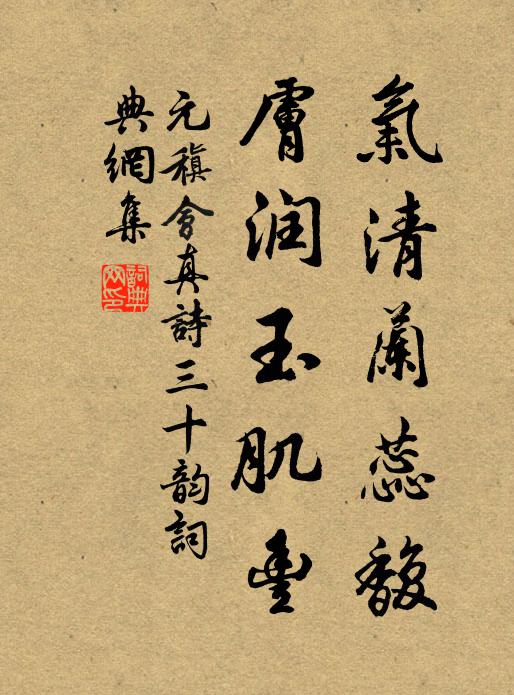 氣清蘭蕊馥
膚润玉肌豊
元稹會真詩三十韵詞
典網集
詞典网印